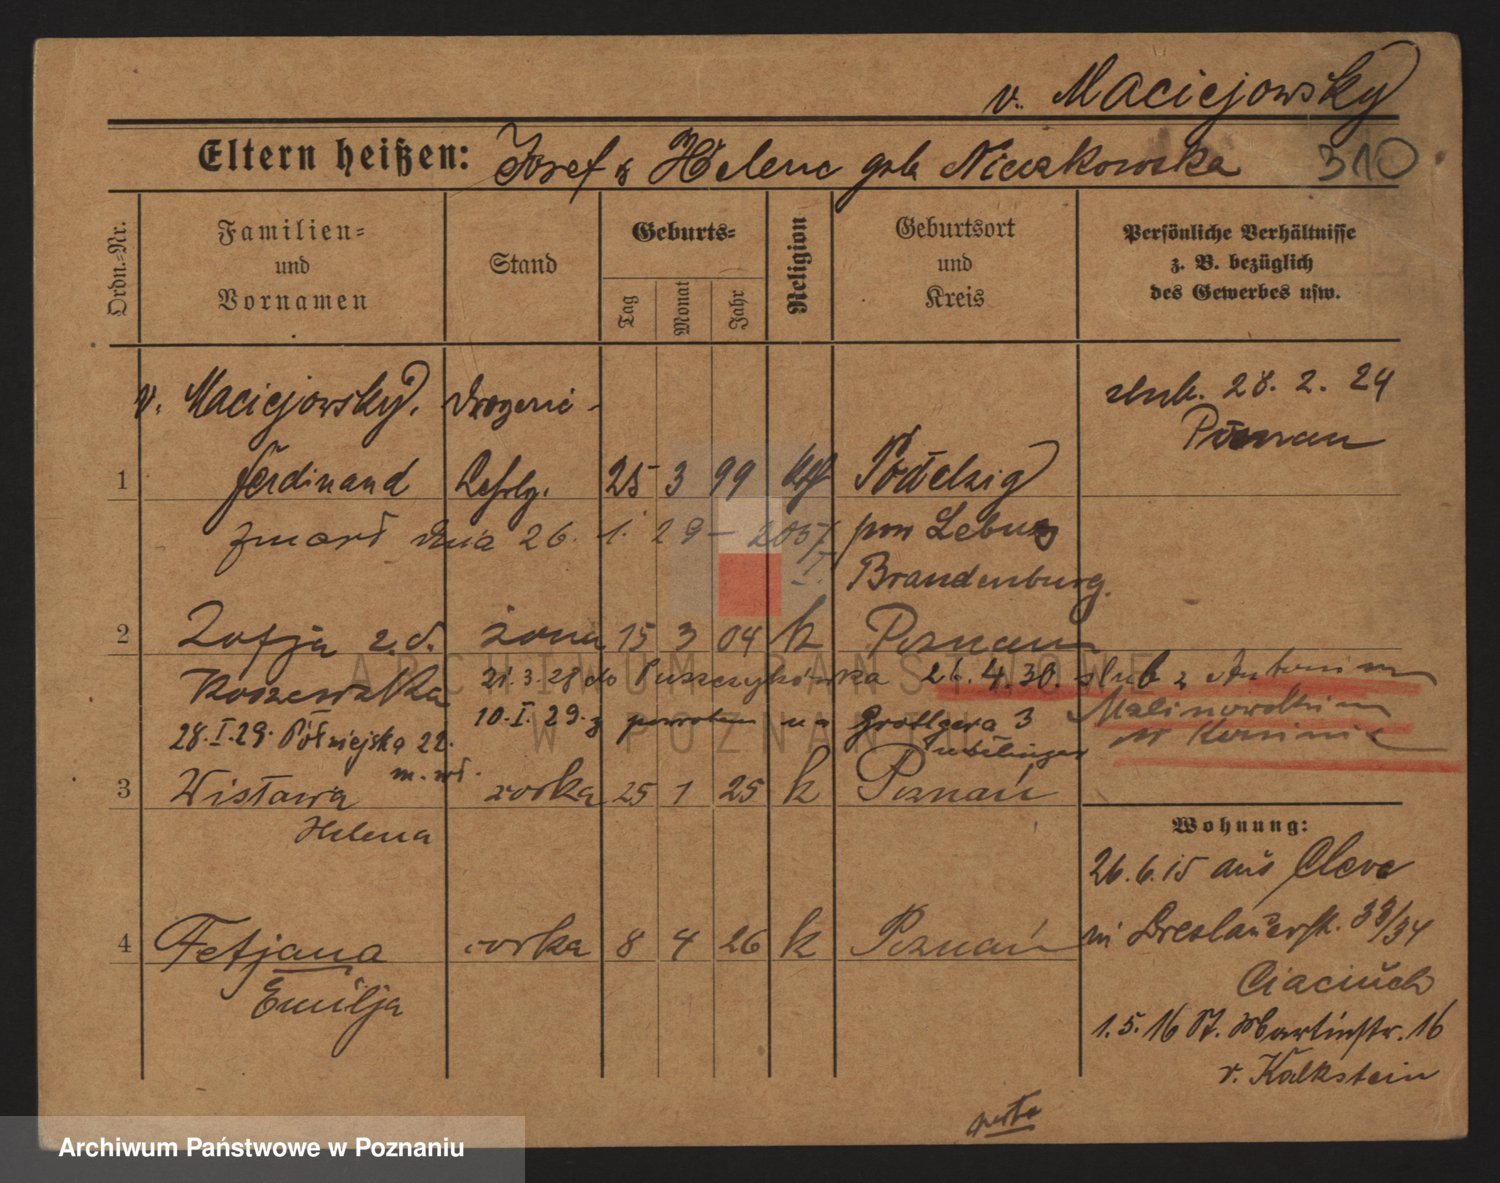 v. Maciejowsky
Eltern heißen: Josef & Helene geb Nieczkowska 310
Ordn.-Nr.
Familien- und Vornamen
Stand
Geburts-
Tag
Monat
Jahr
Religion
Geburtsort und Kreis
Persönliche Verhältnisse z. B. bezüglich des Gewerbes usw.
v. Maciejowsky, Drogerie-
ślub. 28. 2. 24
Poznań
1 Ferdinand Lehrlg. 25 3 99 Podelzig
zmarł dnia 26. 1. 29 – 2057 pow Lebus
I. Brandenburg.
2 Zofja z. d. żona 15 3 04 k Poznań
Koszewska 21.3.28 do Puszczykówka 26.4.30. ślub z Antonim
28.I.29. Półwiejska 22. 10.I.29. z powrotem na Grottgera 3 Malinowskim
m. wł. w Koninie
3 Wisława córka 25 1 25 k Poznań
Helena
Wohnung:
26.6.15 aus Cleve
in Breslauerstr. 33/34
4 Tetjana córka 8 4 26 k Poznań
Ciaciuch
Emilja
1.5.16 St. Martinstr. 16
v. Kalkstein
ARCHIWUM PAŃSTWOWE
W POZNANIU
Archiwum Państwowe w Poznaniu